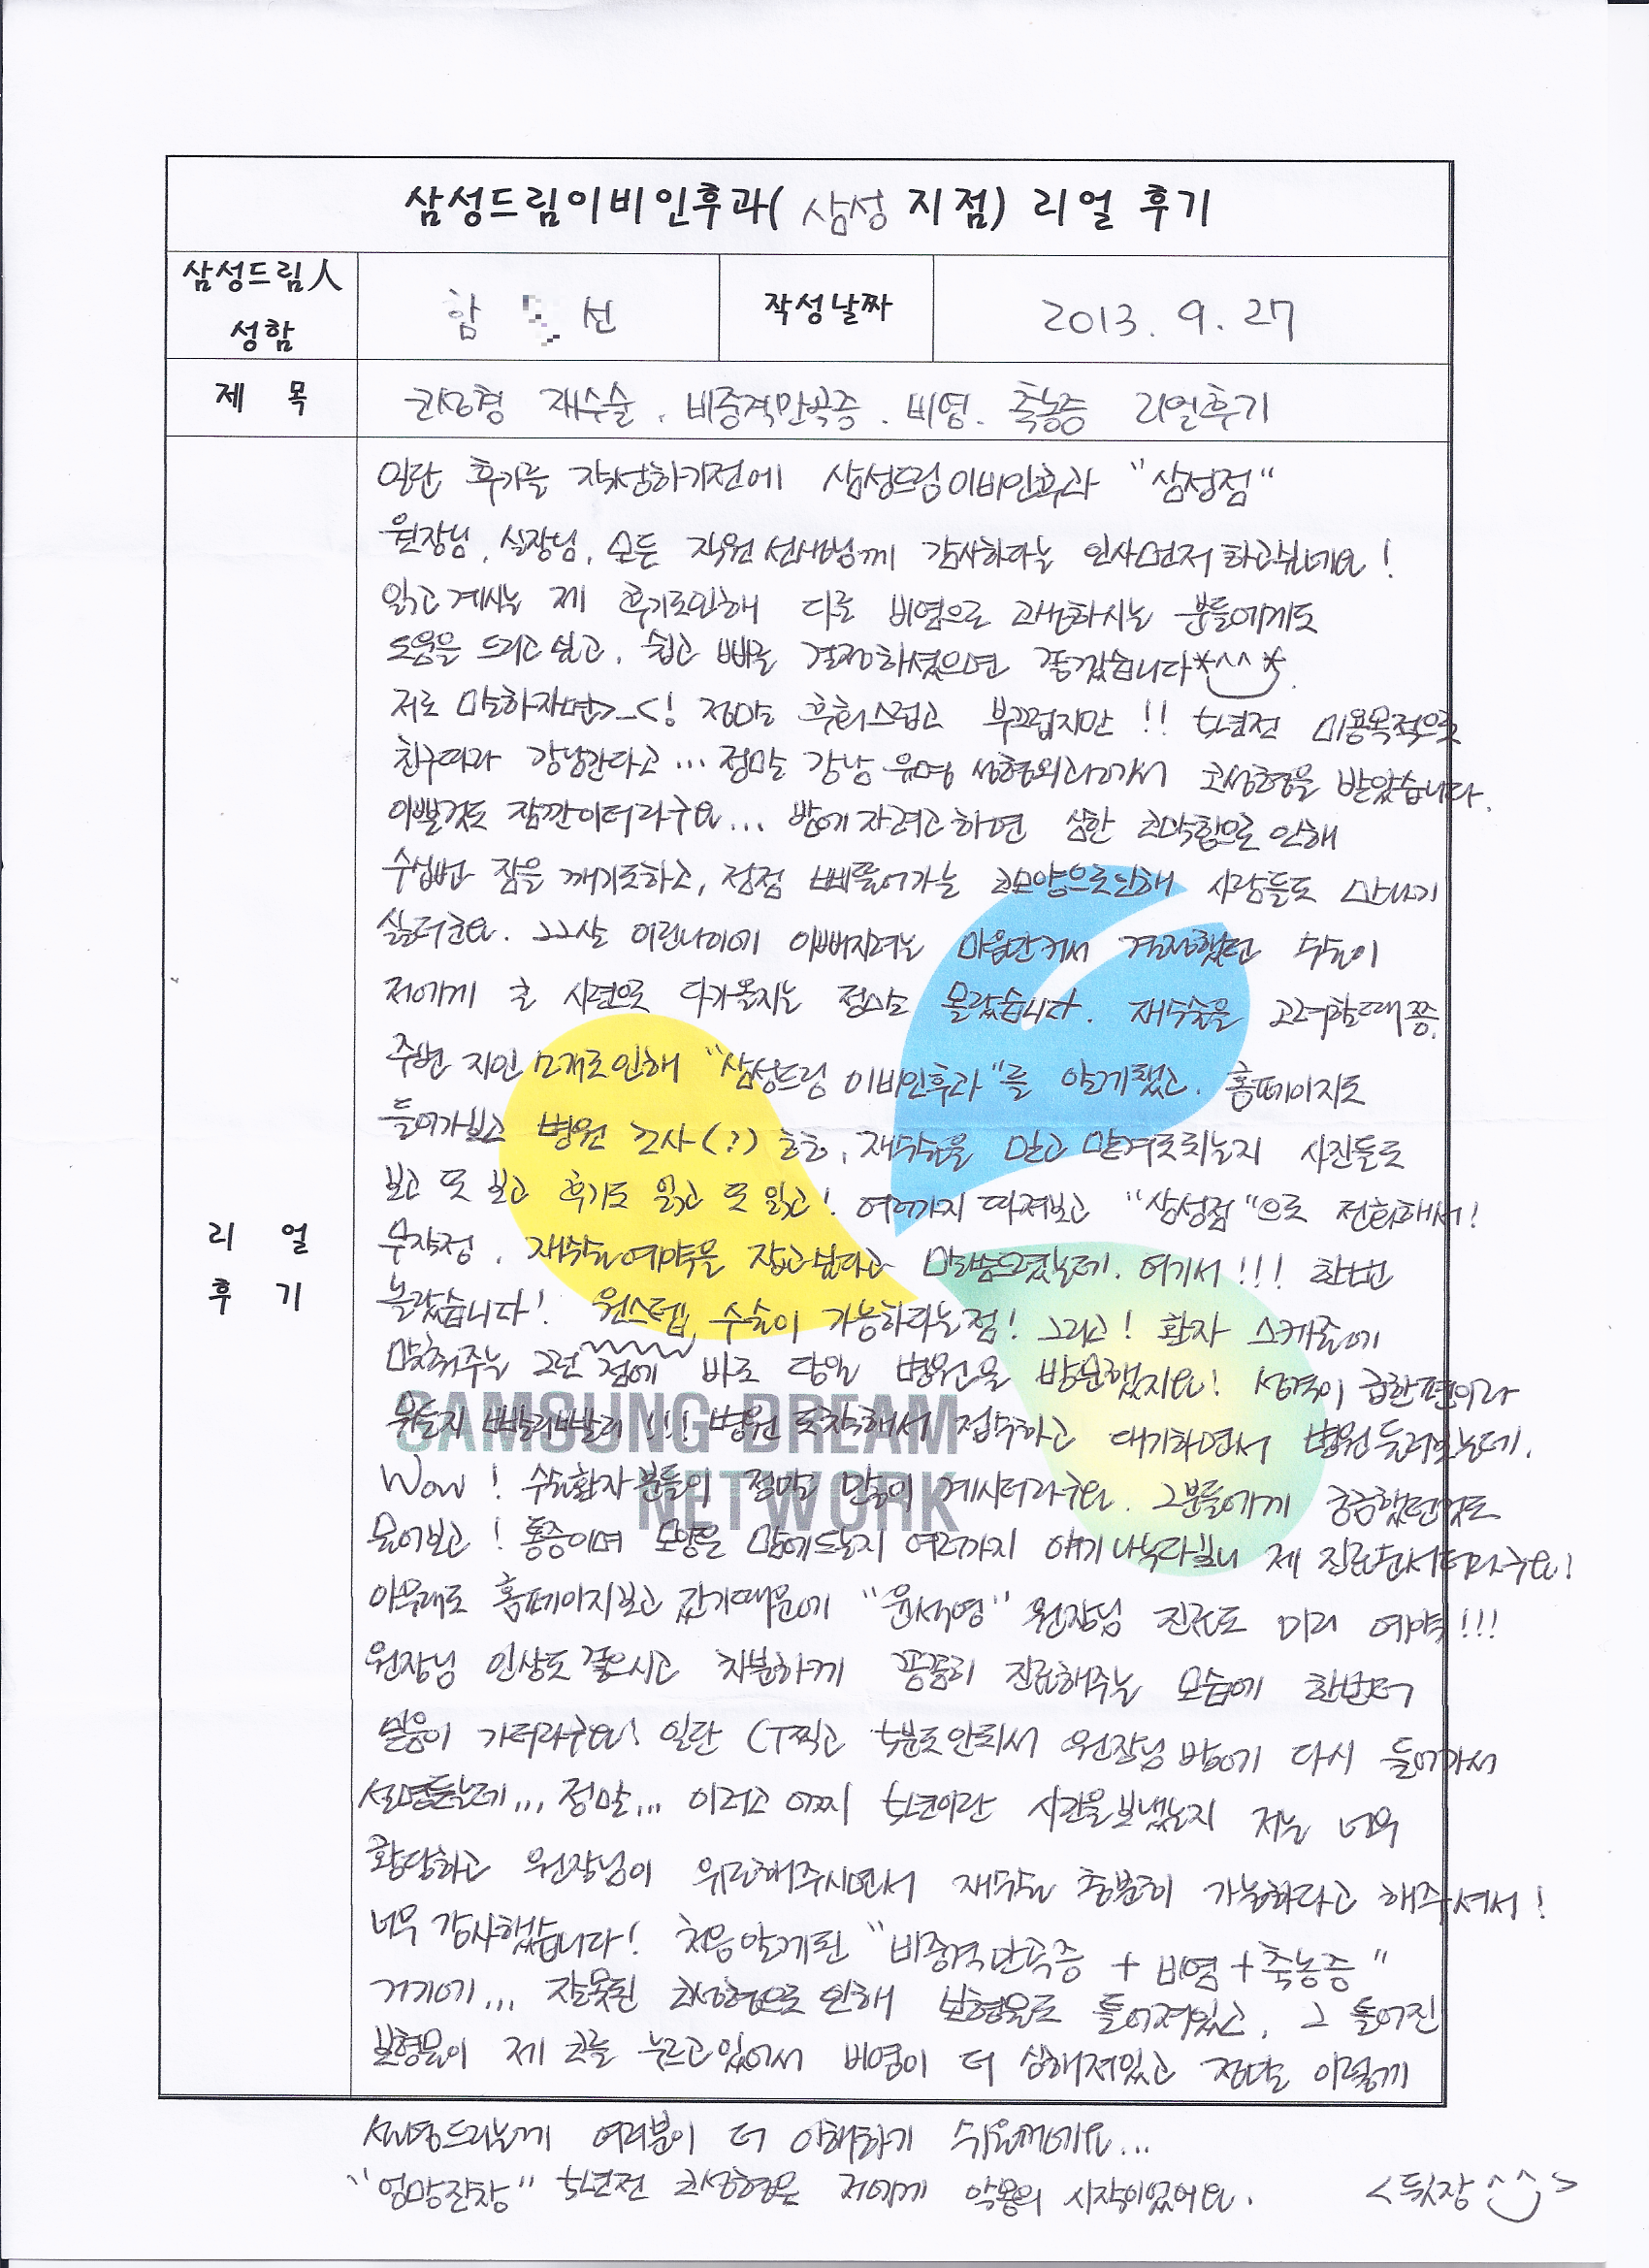 삼성드림이비인후과( 삼성 지점) 리얼 후기
삼성드림人
성함
함 선
작성날짜
2013. 9. 27
제 목
코성형 재수술, 비중격만곡증. 비염. 축농증 리얼후기
리 얼
후 기
일단 후기를 작성하기전에 삼성드림이비인후과 "삼성점"
원장님, 실장님, 모든 직원선생님께 감사하다는 인사먼저하고싶네요!
읽고계시는 제 후기로인해 다른 비염으로 고생하시는 분들에게도
도움을 드리고싶고, 쉽고 빠른 결정하셨으면 좋겠습니다*^^*.
저로 말하자면>_<! 정말 후회스럽고 부끄럽지만!! 5년전 미용목적으로
친구따라 강남간다고... 정말 강남 유명 성형외과가서 코성형을 받았습니다.
이쁠것도 잠깐이더라구요... 밤에자려고하면 심한 코막힘으로 인해
수십번 잠을 깨기도하고, 점점 삐뚤어가는 코모양으로인해 사람들도 만나기
싫더군요. 22살 어린나이에 이뻐지려는 마음만커서 결정했던 수술이
저에게 큰 시련으로 다가올지는 정말로 몰랐습니다. 재수술을 고려할때쯤.
주변 지인소개로인해 "삼성드림 이비인후과"를 알게됐고. 홈페이지도
들어가보고 병원 조사(?) 흐흐, 재수술을 믿고 맡겨도되는지 사진들도
보고 또 보고 후기도 읽고 또 읽고! 여러가지 따져보고 "삼성점"으로 전화해서!
무작정, 재수술예약을 잡고싶다고 말씀드렸는데. 여기서!!! 한번
놀랐습니다! 원스텝, 수술이 가능하다는점! 그리고! 환자 스케줄에
맞춰주는 그런 점에 바로 당일 병원을 방문했지요! 성격이 급한편이라
뭐든지 빨리빨리!!! 병원 도착해서 접수하고 대기하면서 병원둘러보는데.
Wow! 수술환자분들이 정말 많이 계시더라구요. 그분들에게 궁금했던것도
물어보고! 통증이며 모양은 맘에드는지 여러가지 얘기나누다보니 제 진료순서더라구요!
아무래도 홈페이지보고 갔기때문에 "윤석영" 원장님 진료도 미리 예약!!!
원장님 인상도좋으시고 차분하게 꼼꼼히 진료해주는 모습에 한번더
믿음이 가더라구요! 일단 CT찍고 5분도안되서 원장님 방에 다시 들어가서
설명듣는데... 정말... 이러고 어찌 5년이란 시간을보냈는지 저는 너무
황당하고 원장님이 위로해주시면서 재수술 충분히 가능하다고 해주셔서!
너무 감사했습니다! 처음알게된 "비중격만곡증 + 비염+축농증"
거기에... 잘못된 코성형으로 인해 보형물도 틀어져있고, 그 틀어진
보형물이 제 코를 누르고있어서 비염이 더 심해져있고 정말 이렇게
설명드리는게 여러분이 더 이해하기 쉬울꺼에요...
"엉망진창" 5년전 코성형은 저에게 악몽의 시작이었어요. <뒷장^^>
SAMSUNG DREAM
NETWORK